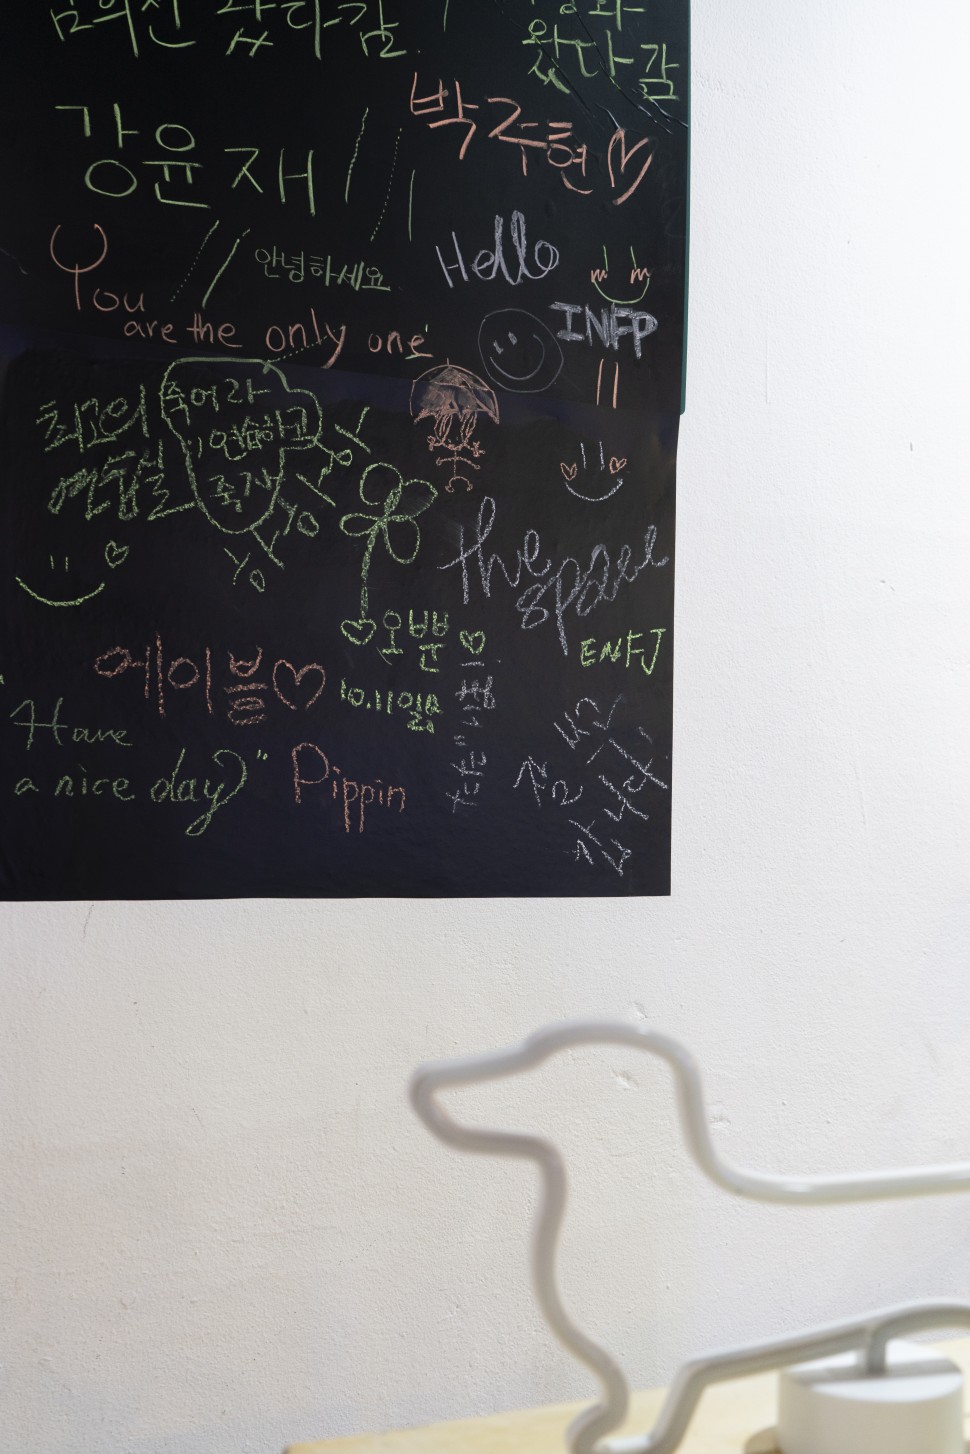 왔다감
왔다감
강윤재
박주현
Hello
안녕하세요
You
are the only one
INFP
최고의
연습실
죽어라
연습하고
죽자
the
space
ENFJ
오뿐
10.11일
에이블
"Have
a nice day"
Pippin